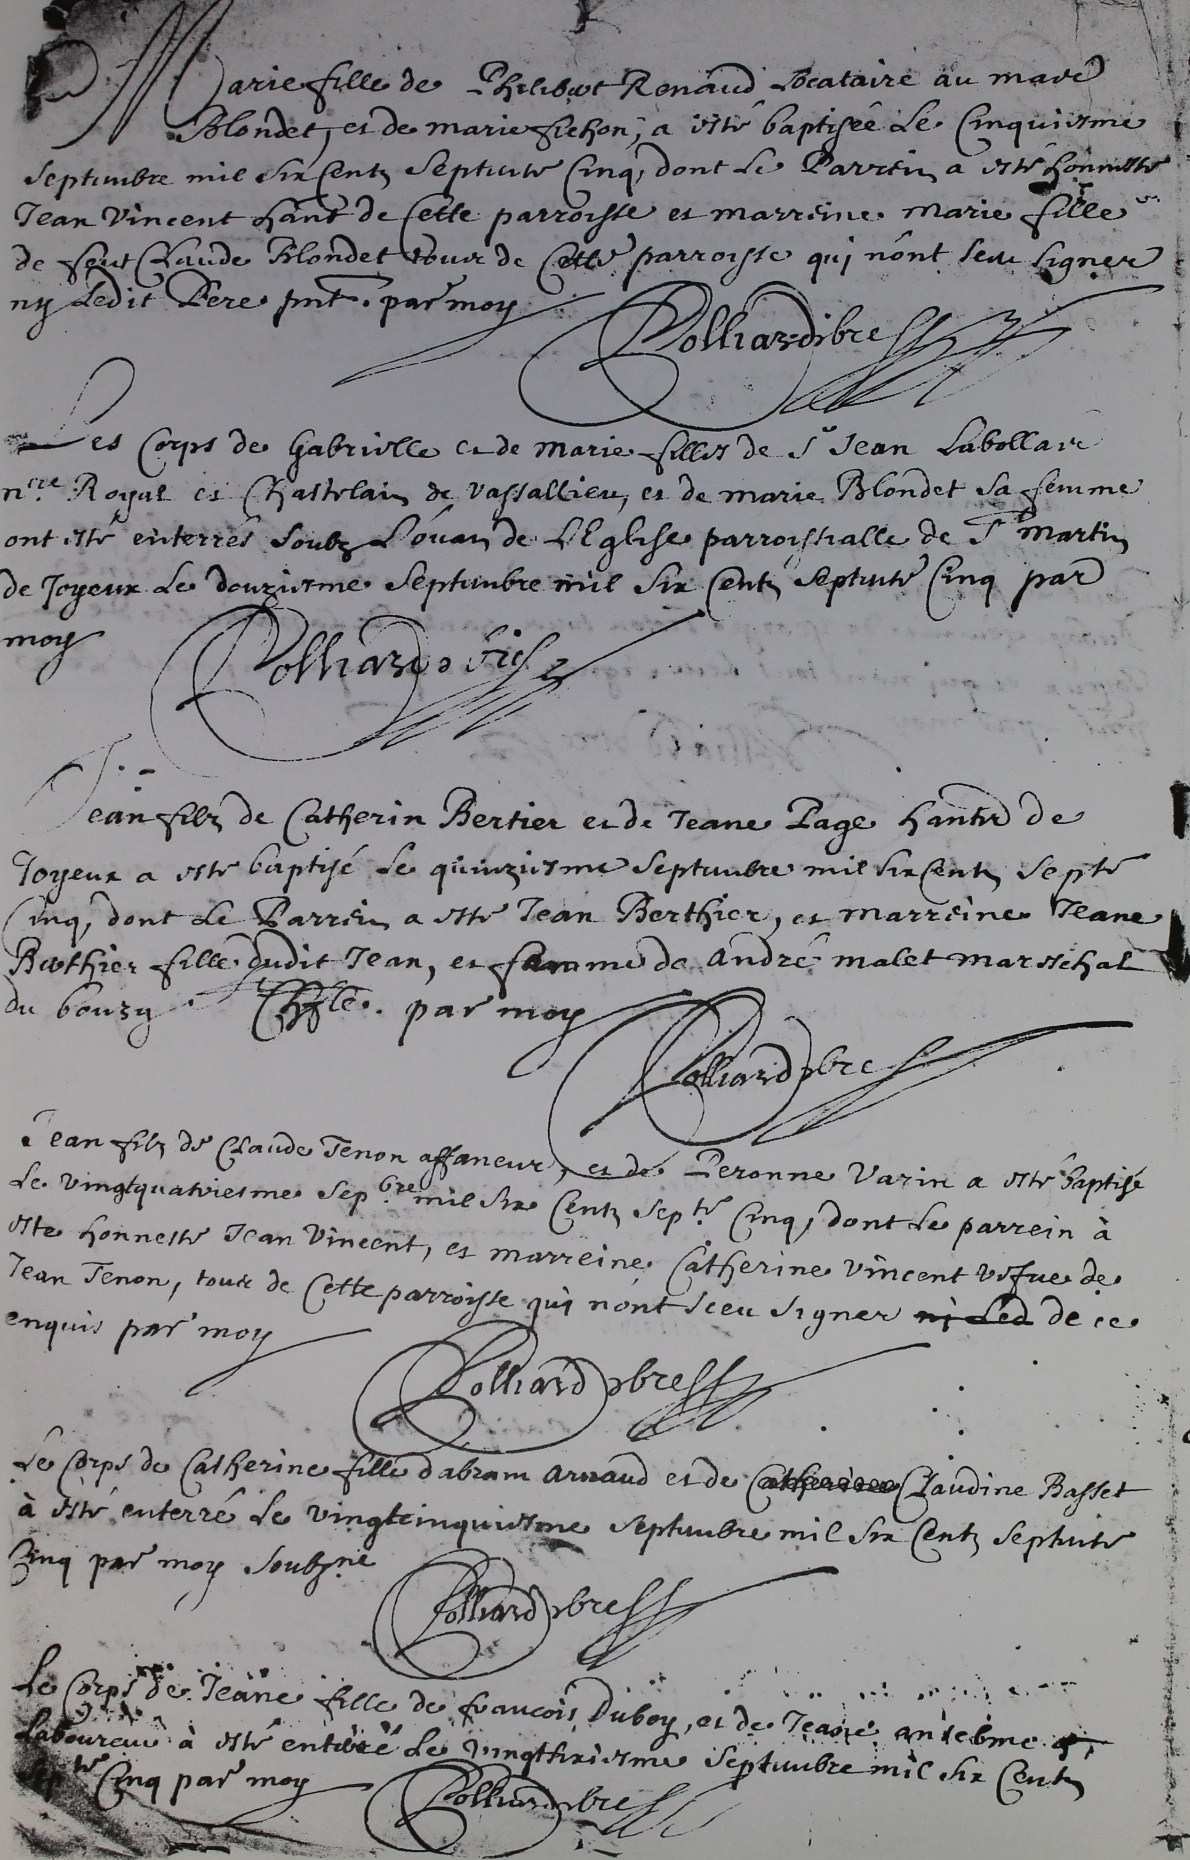 Marie fille de Philibert Renaud Locataire au mare
Blondet, et de marie fichon, a esté baptisée le Cinquiesme
septembre mil six Cents septante Cinq, dont le Parrein a esté honneste
Jean Vincent hãnt de Cette parroisse et marreine marie fille
de feut Claude Blondet tour de Cette parroisse qui nont sceu signer
ny Ledit Pere pnt. par moy
Polliard vbre
Les Corps de Gabrielle et de Marie filles de Sr Jean Labollare
nre Royal et Chastelain de vassallieu, et de marie Blondet sa femme
ont esté enterrés soubz L'ouan de L'Eglise parroissialle de St Martin
de Joyeux Le douziesme septembre mil six Cents septante Cinq par
moy
Polliard vbre
Jean filz de Catherin Bertier et de Jeane Page hantz de
Joyeux a esté baptisé le quinziesme septembre mil six Cents septte
Cinq, dont Le Parrein a esté Jean Berthier, et marreine Jeane
Berthier fille dudit Jean, et femme de André malet mareschal
du bourg par moy
Polliard vbre
Jean filz de Claude Tenon affaneur, et de Peronne Varin a esté baptisé
Le vingtquatriesme sepbre mil six Cents septe Cinq, dont le parrein à
este honneste Jean Vincent, et marreine Catherine Vincent vefue de
Jean Tenon, tour de Cette parroisse qui nont sceu signer ni Led de ce
enquis par moy
Polliard vbre
Le Corps de Catherine fille dabram Arnaud et de Catherine Claudine Basset
à esté enterré Le vingtcinquiesme septembre mil six Cents septante
Cinq par moy soubzne
Polliard vbre
Le Corps de Jeane fille de francois Duboy, et de Jeane anselme
Laboureur à esté enterré Le vingtsixiesme septembre mil six Cents
septe Cinq par moy
Polliard vbre